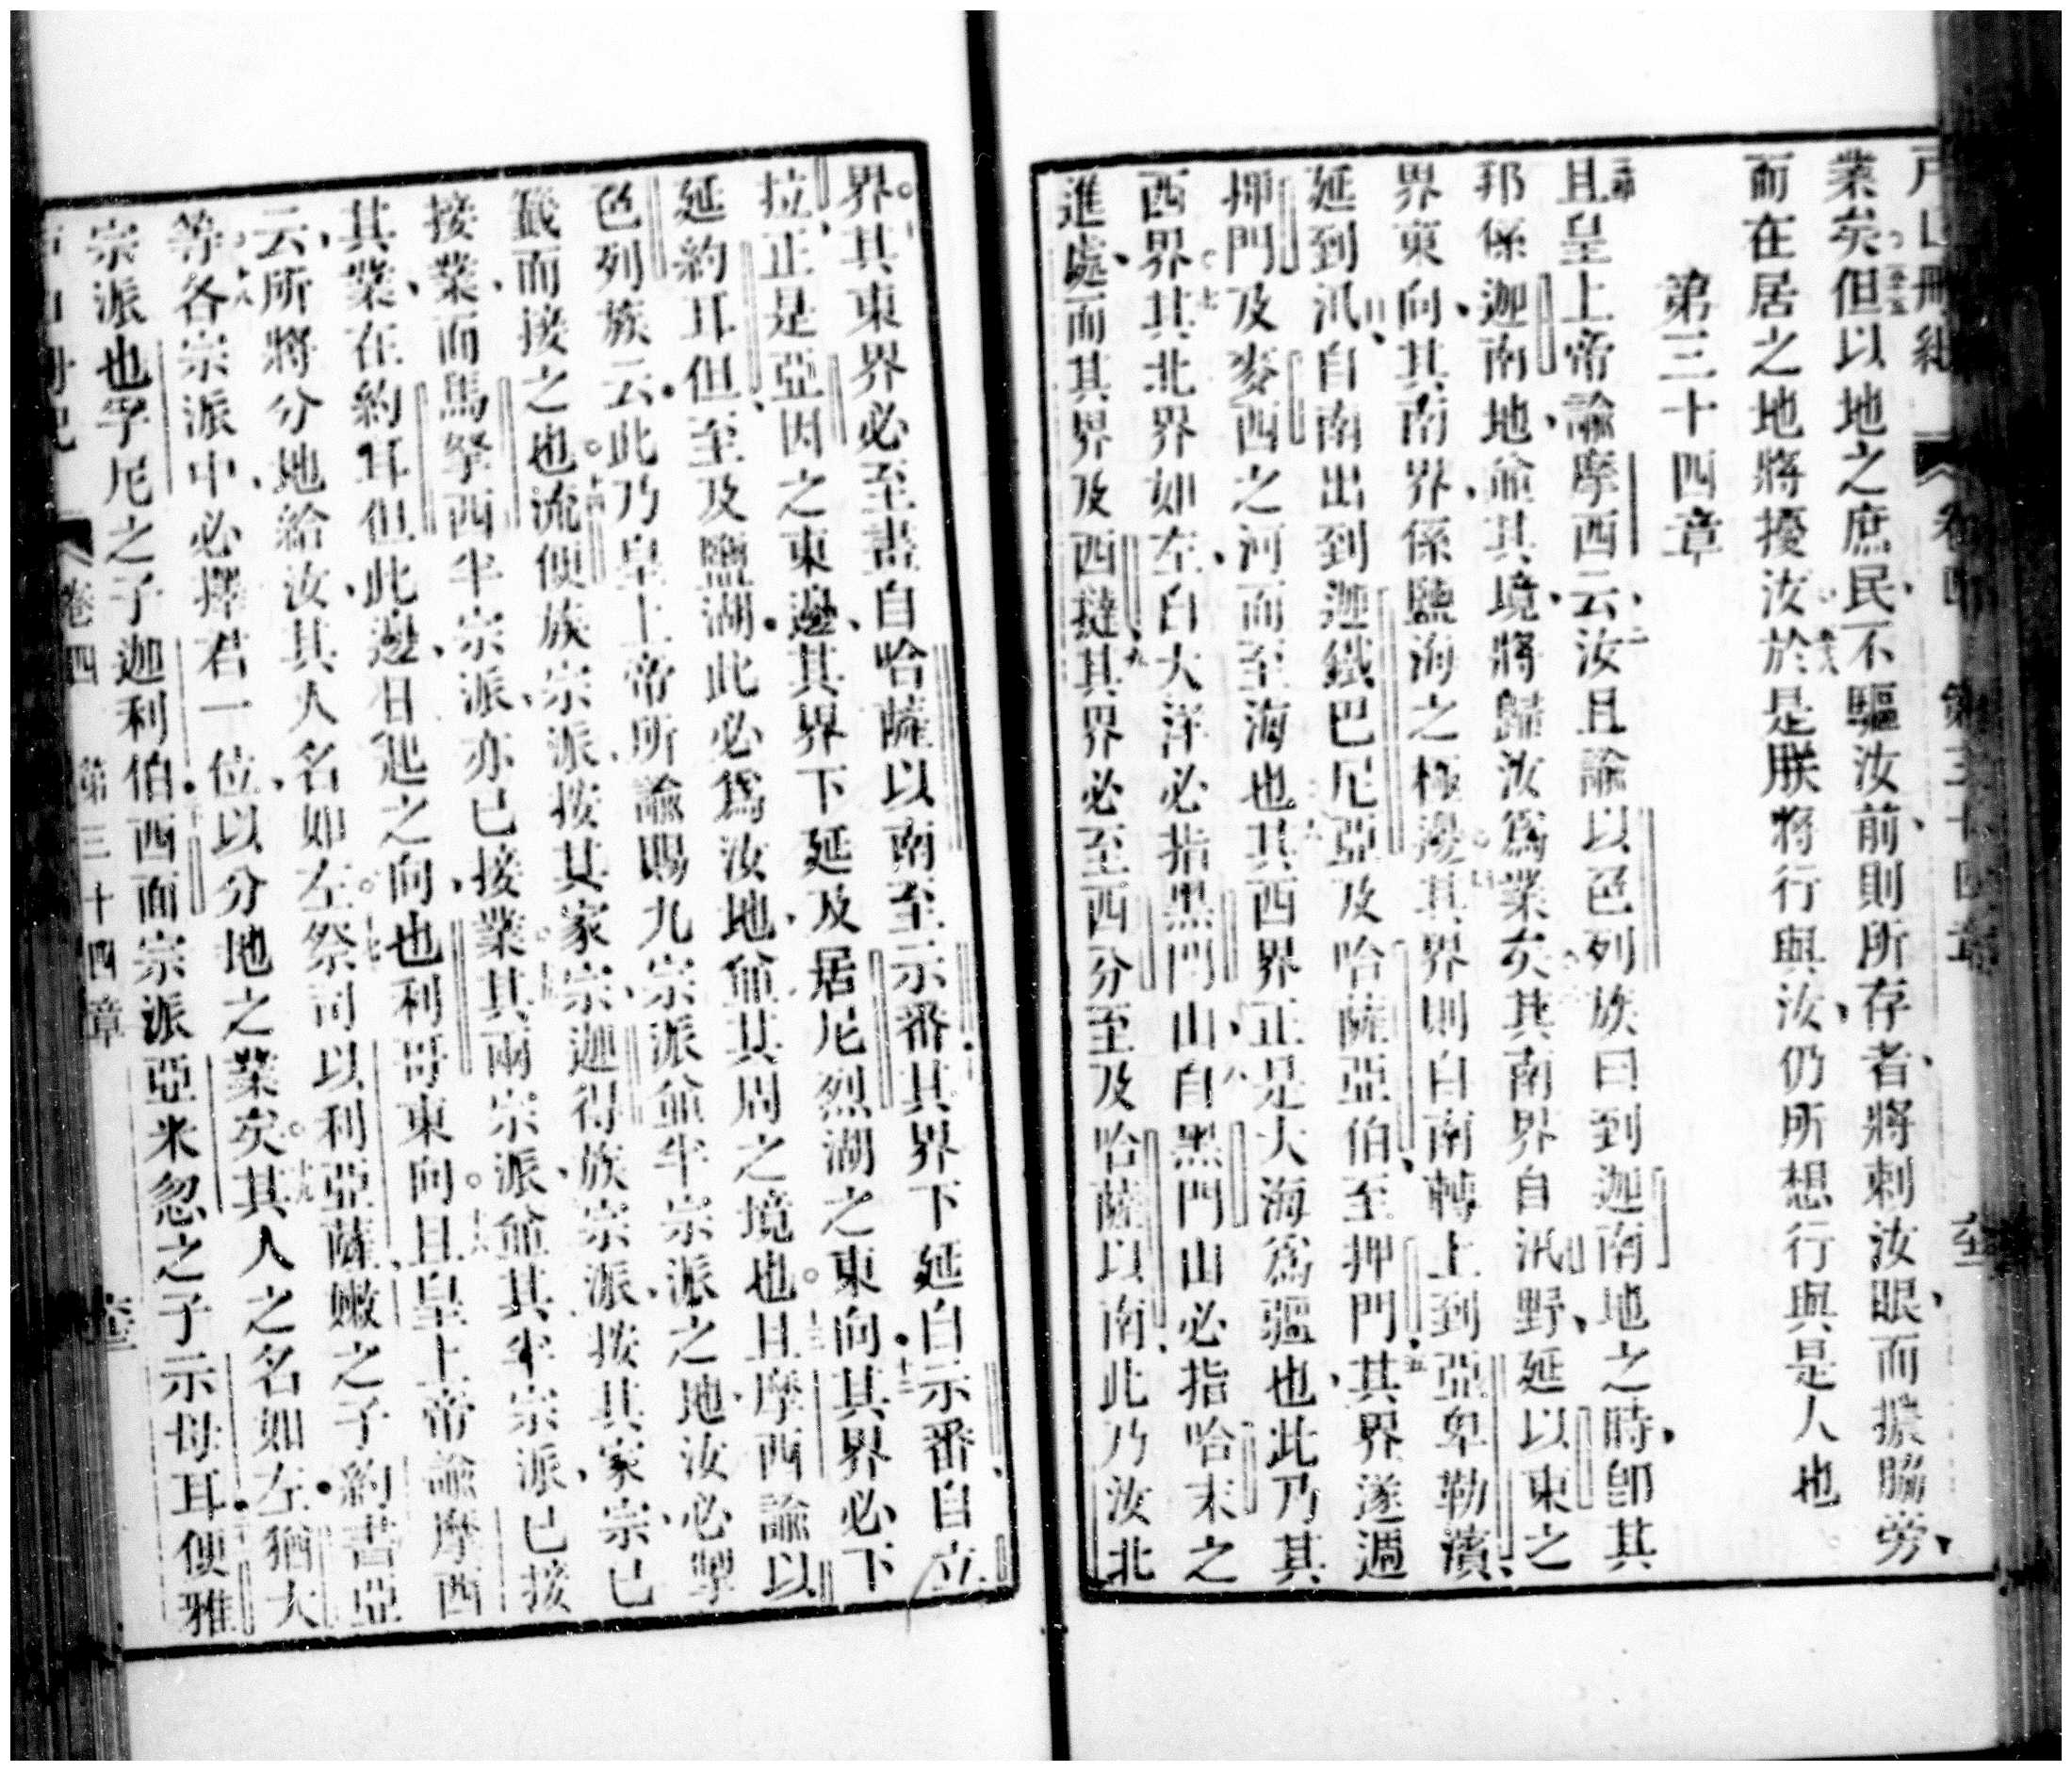 戶口冊紀 卷四 第三十四章
業矣但以地之庶民不驅汝前則所存者將刺汝眼而攘脇旁
而在居之地將擾汝於是朕將行與汝仍所想行與是人也
第三十四章
且皇上帝諭摩西云汝且諭以色列族曰到迦南地之時卽其
邦係迦南地兪其境將歸汝爲業矣其南界自汛野延以東之
界東向其南界係鹽海之極邊其界則自南轉上到亞卑勒濱
延到汛自南出到迦鐵巴尼亞及哈薩亞伯至押門其界遂週
押門及麥西之河而至海也其西界正是大海爲疆也此乃其
西界其北界如左自大洋必指黑門山自黑門山必指哈末之
進處而其界及西撻其界必至西分至及哈薩以南此乃汝北
界其東界必至書自哈薩以南至示番其界下延自示番自立
拉正是亞因之東邊其界下延及居尼烈湖之東向其界必下
延約耳但至及鹽湖此必爲汝地兪其周之境也且摩西諭以
色列族云此乃皇上帝所諭賜九宗派兪半宗派之地汝必掣
籤而接之也流便族宗派按其家宗迦得族宗派按其家宗已
接業而馬拏西半宗派亦已接業其兩宗派兪其半宗派已接
其業在約耳但此邊日起之向也利哥東向且皇上帝諭摩西
云所將分地給汝其人名如左祭司以利亞薩嫩之子約書亞
等各宗派中必擇君一位以分地之業矣其人之名如左猶大
宗派也孚尼之子迦利伯西面宗派亞米忽之子示母耳便雅
戶口冊紀 卷四 第三十四章